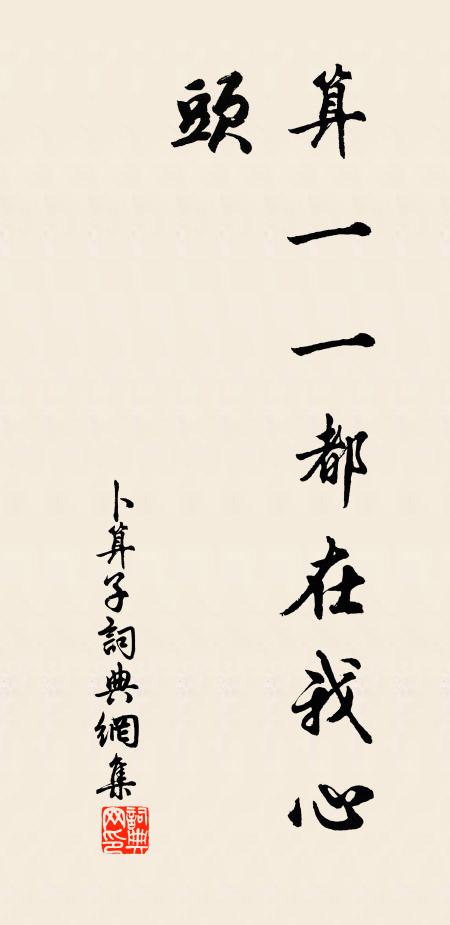 算一一都在我心
頭
卜算子詞典網集
詞典
网印